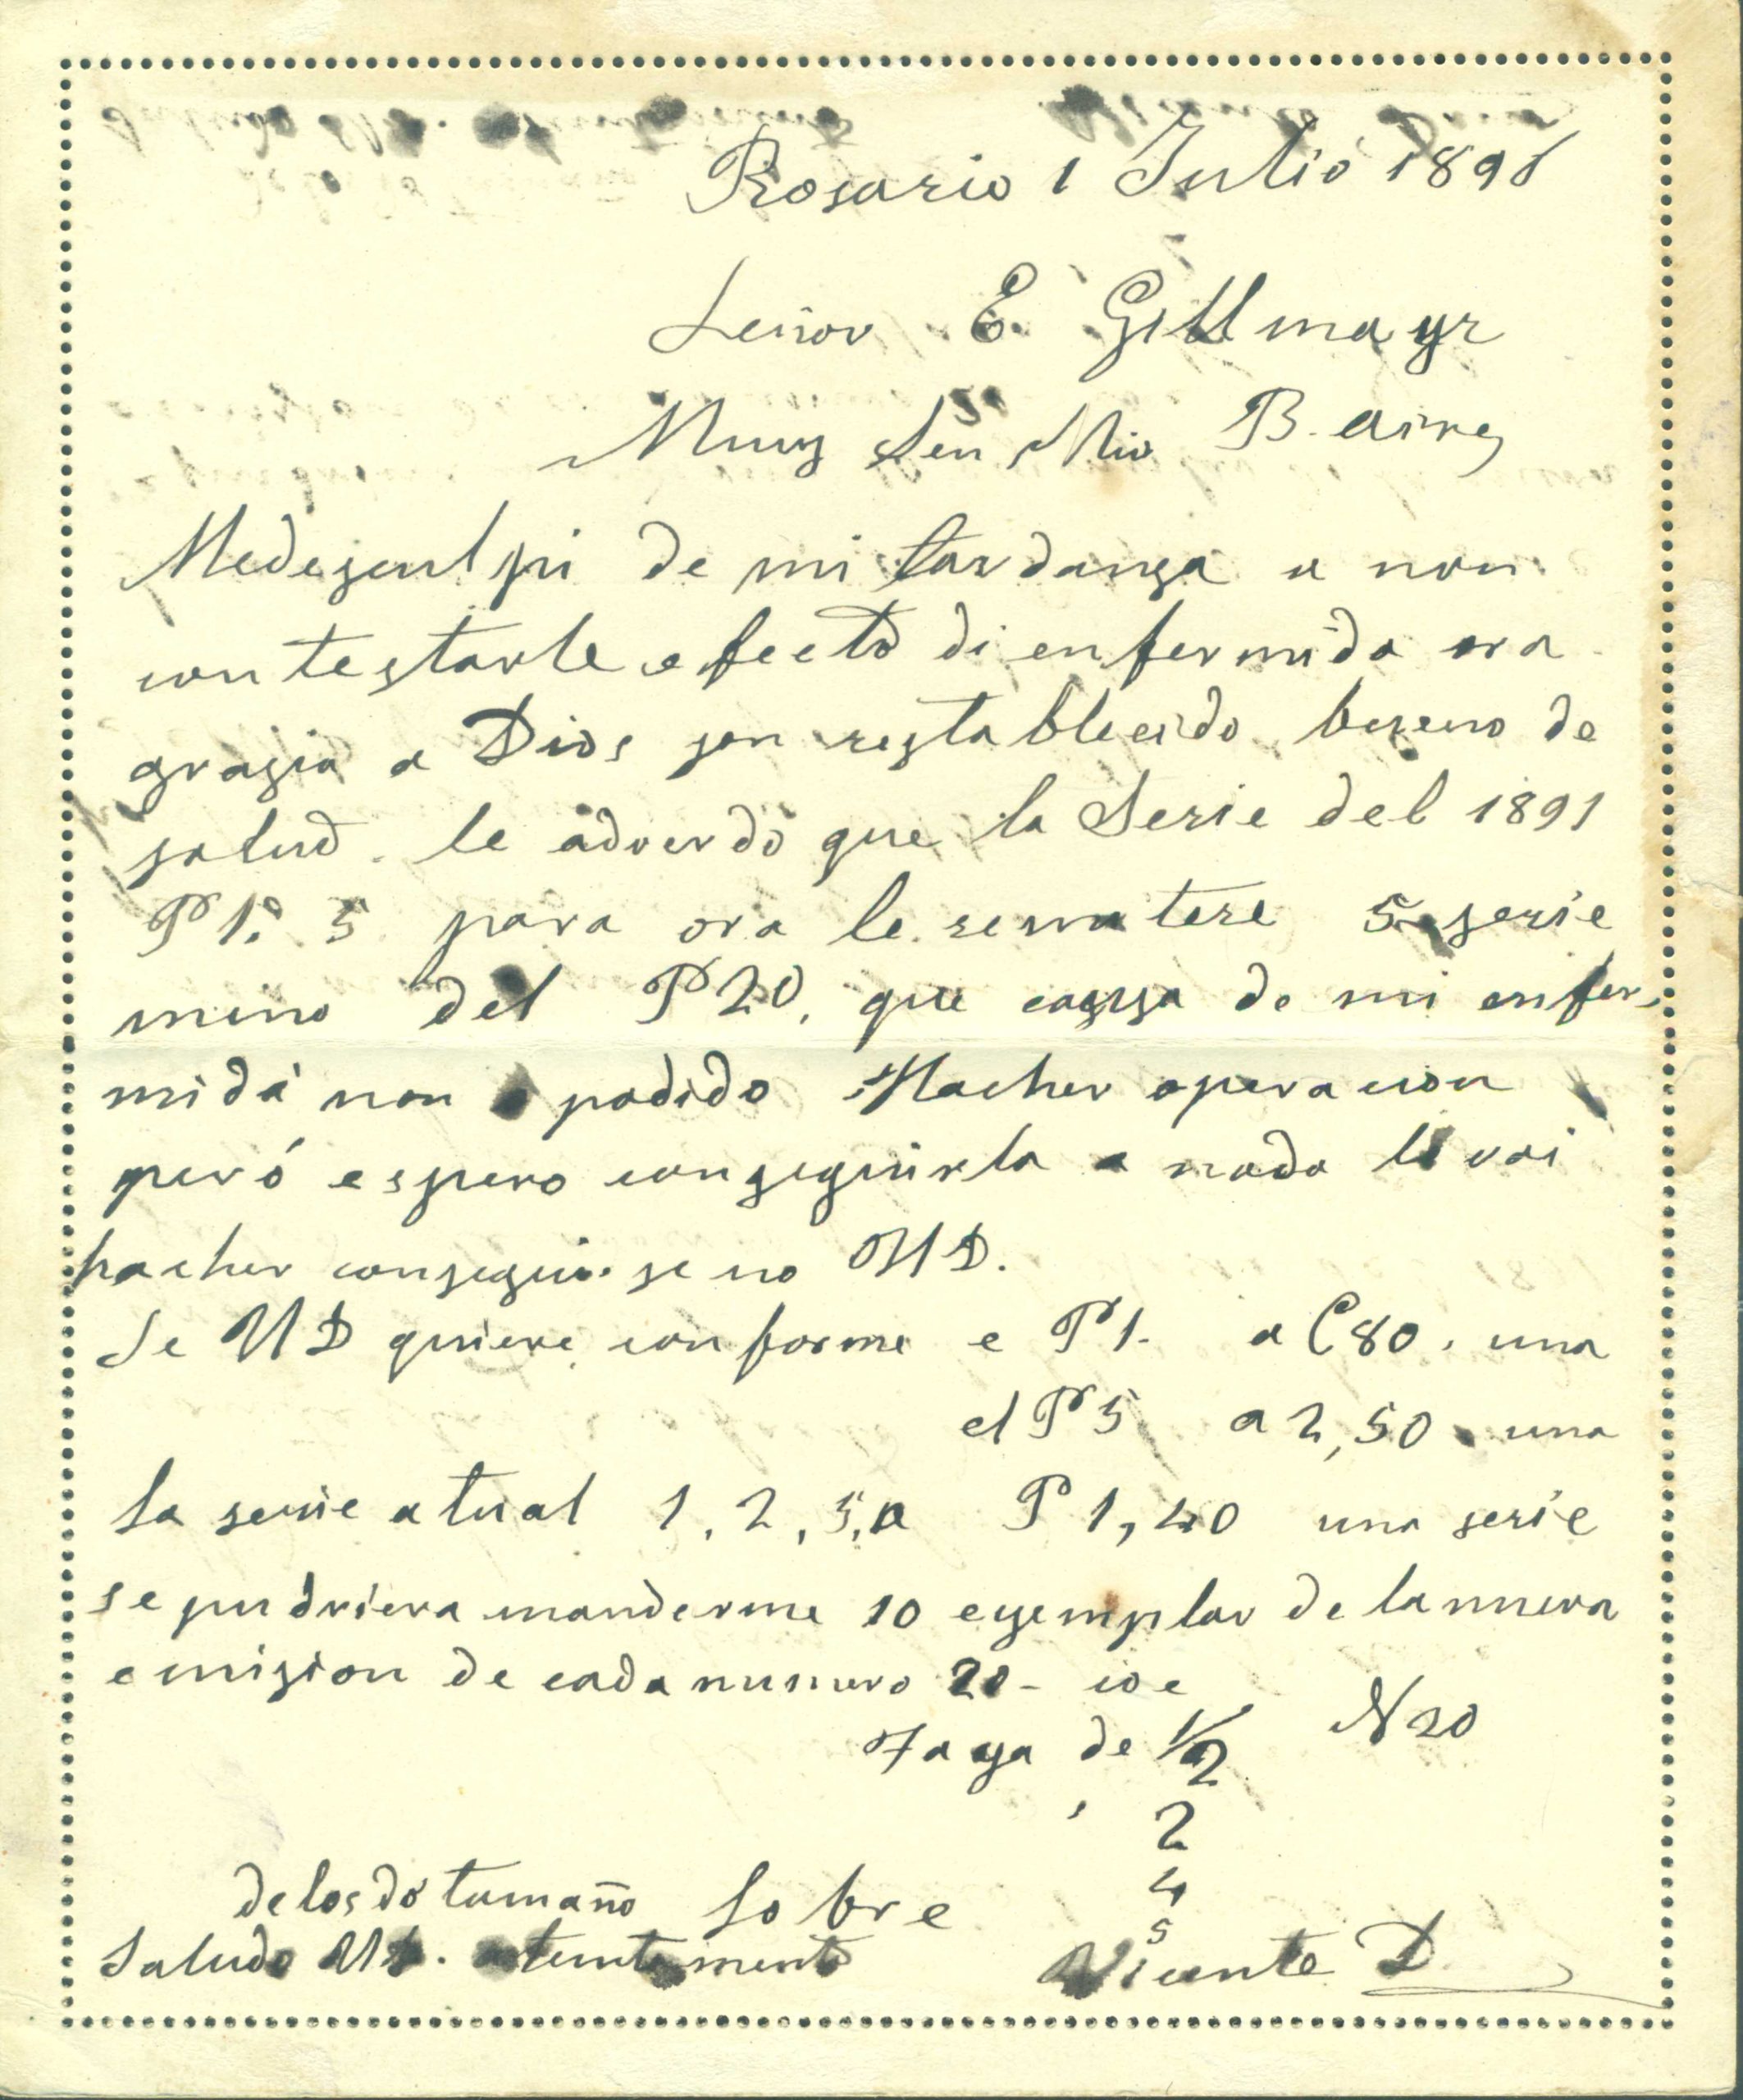 Rosario 1 Julio 1896
Señor E Gillmayr
Muuy Sen Mio B. Aires
Medesculpi de mi tardansa a non
contestarle efecto di enfermida ora
grasia a Dios son restablecido bueno de
salud. le adverdo que la Serie del 1891
P 1. 5 para ora le rematere 5 serie
meno del P 20. que causa de mi enfer-
midá non o podido Hacher operacion
peró espero conseguirla a nada le vai
hacher conseguir se no UD.
Se UD quiere conforme e P 1. a C 80. una
el P 5 a 2,50 una
la serie atual 1, 2, 5, a P 1,40 una serie
se pudriera manderme 10 egemplar de la nueva
emision de cada numero 20 - ioe
Faga de 1/2 N 20
2
4
5
de los dó tamaño Sobre
Saludo UD. atentamente Vicente D.